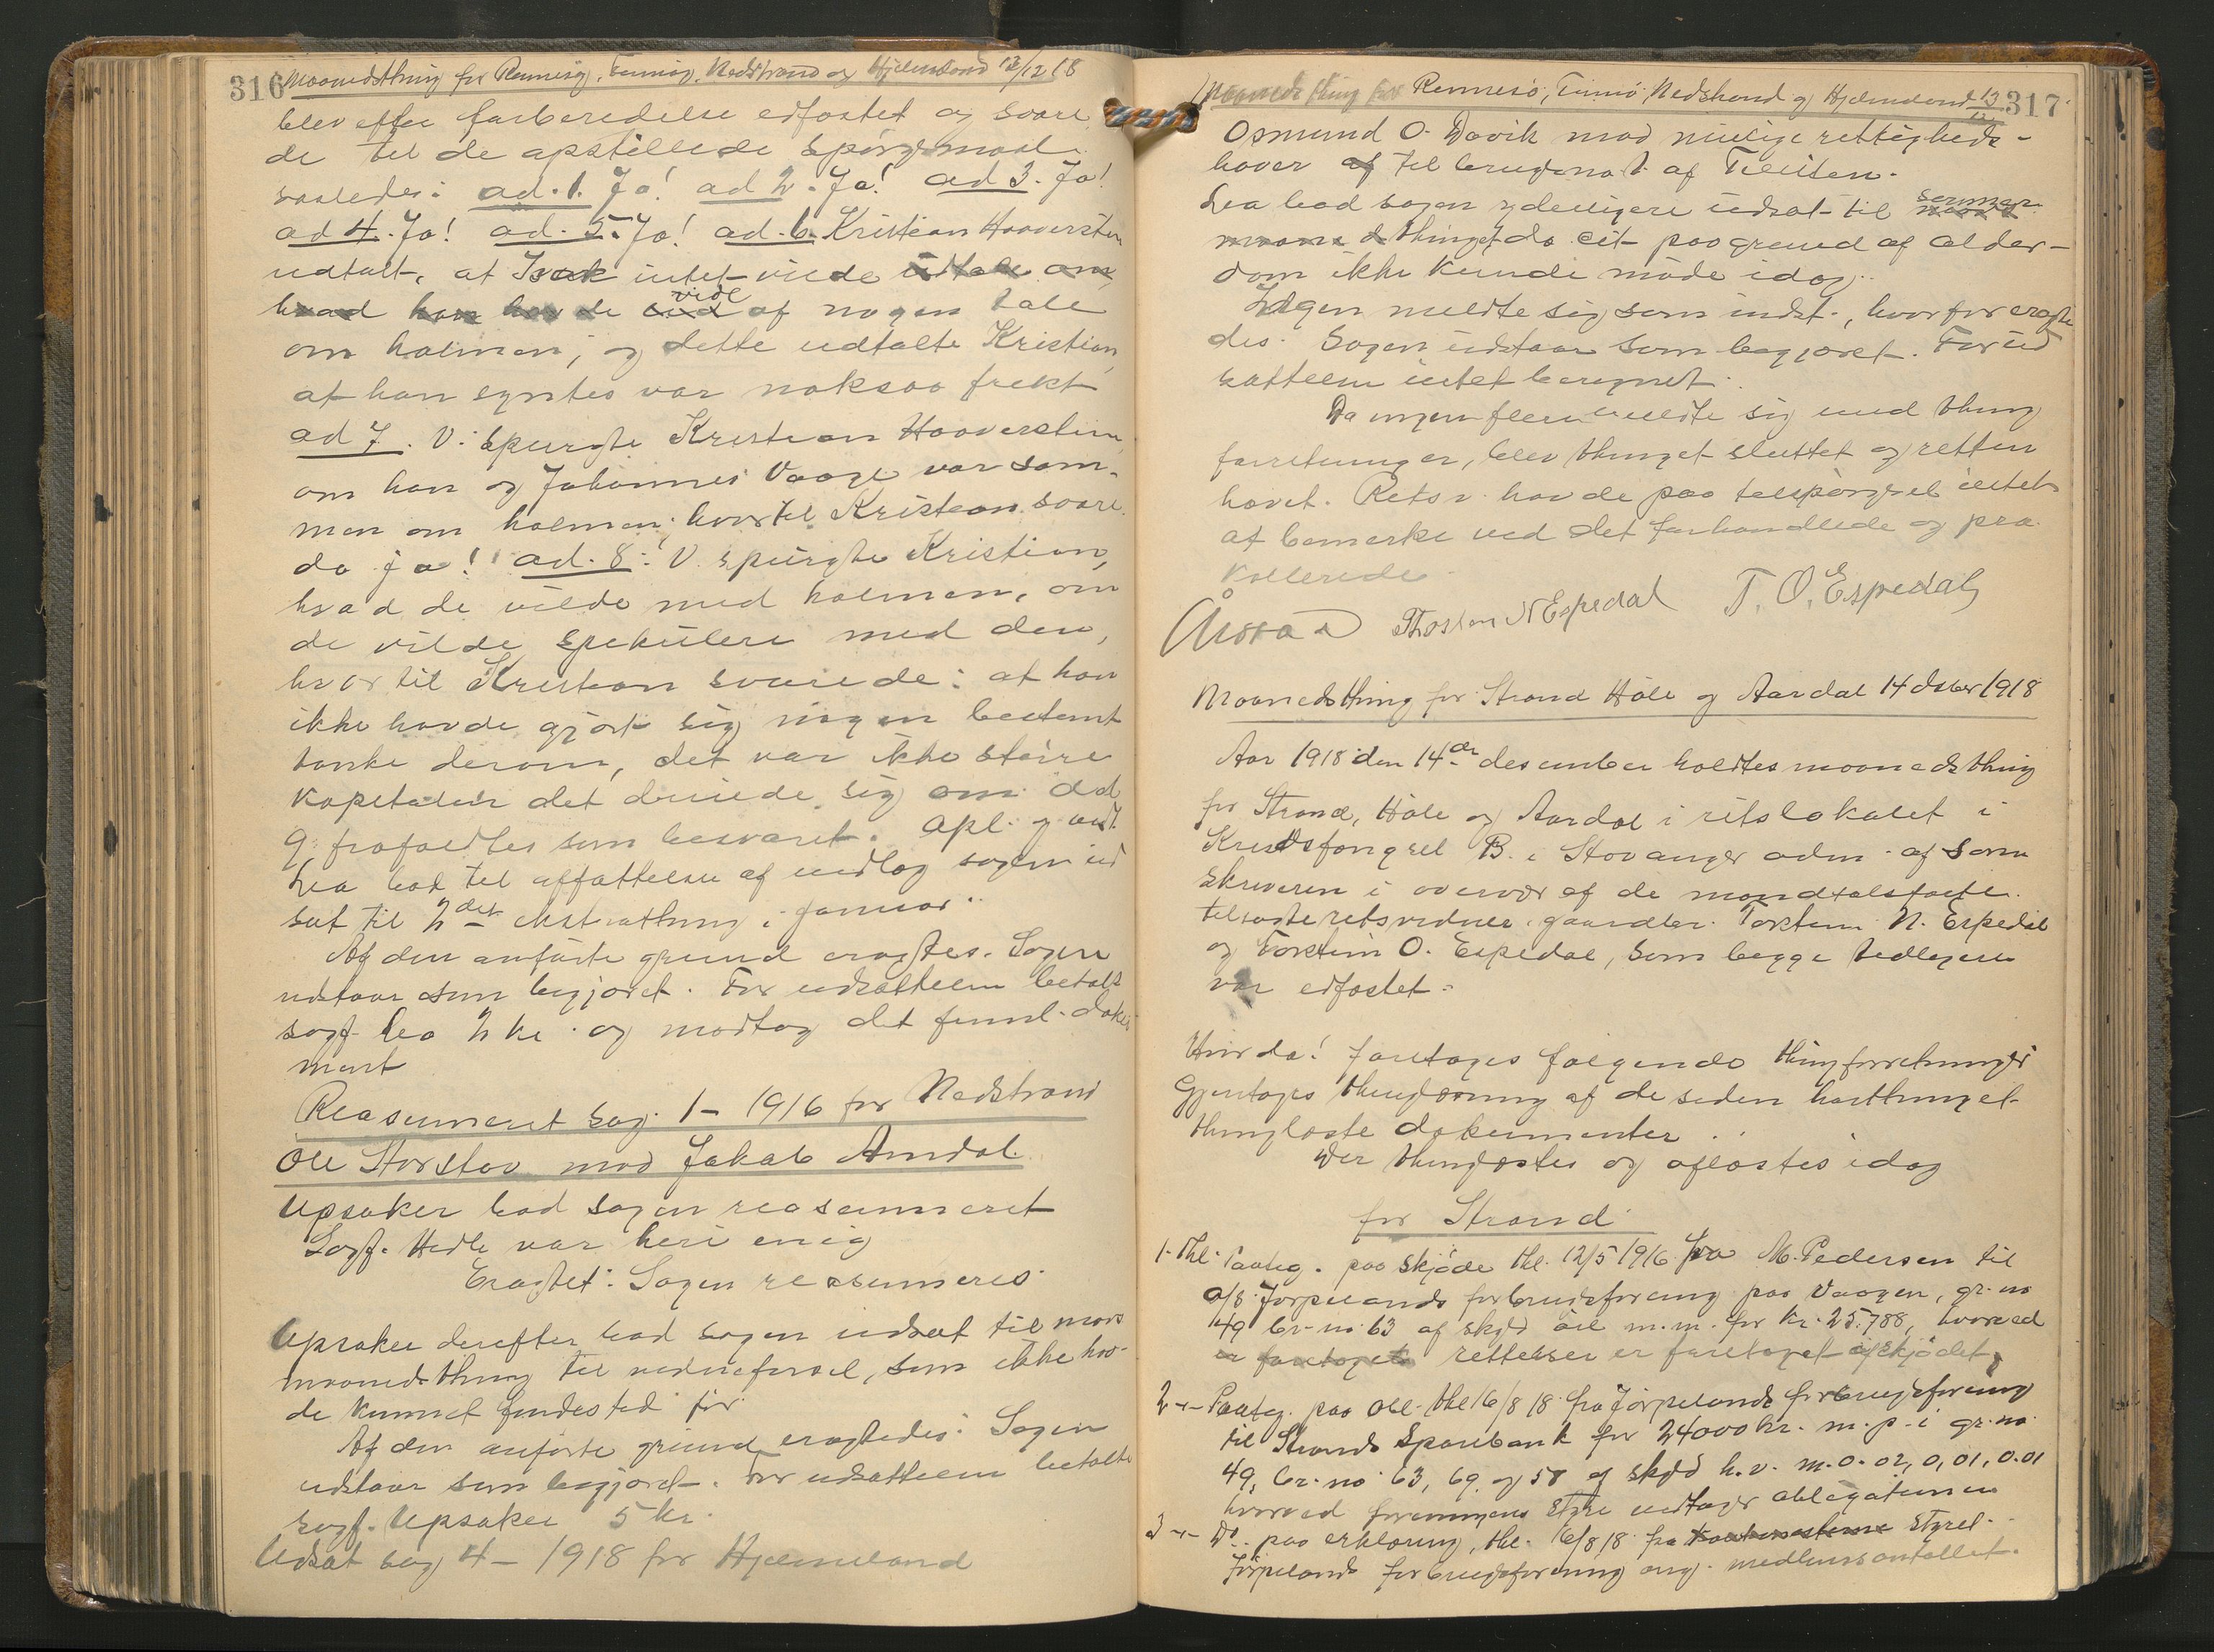 316 Maanedsthing for Rennesø, Finnøy, Nedstrand og Hjelmeland 13/12 18
blev efter forberedelse edfæstet og svare
de til de opstillede spørgsmaal
saaledes: ad. 1. Ja! ad 2. Ja! ad 3. Ja!
ad 4. Ja! ad. 5. Ja! ad. 6. Kristian Haaverstein
udtalt, at Isak intet vilde udtale om
hvad han havde vide af nogen tale
om holmen; og dette udtalte Kristian,
at han syntes var noksaa frekt
ad 7. V. spurgte Kristian Haaverstein
om han og Johannes Vaage var sam-
men om holmen: hvortil Kristian svare
de ja! ad. 8: V. spurgte Kristian,
hvad de vilde med holmen, om
de vilde spekulere med den,
hvortil Kristian svarede: at han
ikke havde gjort sig nogen bestemt
tanke derom, det var ikke større
kapitalen det dreiede sig om. ad
9. frafaldtes som besvaret. Opl. og vedt.
Lea bad til affattelse af indlæg sagen ud
sat til 2det ekstrathing i januar.
Af den anførte grund eragtes. Sagen
udstaar som begjæret. For udsættelsen betalt
sagf. Lea 2 kr. og modtog det feml. doku
ment
Reasumeret sag. 1 - 1916 for Nedstrand
Ole Storstov mod Jakob Amdal.
Opsaker bad sagen reasumeret
Sagf. Hedle var heri enig
Eragtet: Sagen reasumeres
Opsaker derefter bad sagen udsat til mars
maanedsthing til vidneførsel, som ikke hav-
de kunnet finde sted før.
Af den anførte grund eragtedes: Sagen
udstaar som begjæret. For udsættelsen betalte
sagf. Opsaker 5 kr.
Udsat sag 4 - 1918 for Hjelmeland
Maanedsthing for Rennesø, Finnø, Nedstrand og Hjelmeland 13/12 317
Osmund O. Døvik mod mulige rettigheds-
haver af til brugsno 1. af Tveiten.
Lea bad sagen yderligere udsat til sommer
maaneds thinget, da cit. paa grund af alder-
dom ikke kunde møde idag.
Ingen meldte sig som indst., hvorfor eragte
des. Sagen udstaar som begjæret. For ud
sættelsen intet beregnet.
Da ingen flere meldte sig med thing
forretninger, blev thinget sluttet og retten
hævet. Retsv. havde paa tilspørgsel intet
at bemerke ved det forhandlede og pro
kollerede.
Thosten N Espedal T. O. Espedal
Maanedsthing for Strand Høle og Aardal 14 dsbr 1918
Aar 1918 den 14de desember holdtes maanedsthing
for Strand, Høle og Aardal i retslokalet i
Kredsfængsel B. i Stavanger adm. af soren
skriveren i overvær af de mandtalsførte
tilsagte retsvidner, gaardbr. Torstein N. Espedal
og Torstein O. Espedal, som begge tidligere
var edfæstet.
Hvorda! foretages følgende thingforretninger
Gjentages thinglæsning af de siden høstthinget
thinglæste dokumenter.
Der thinglæstes og aflæstes idag
for Strand
1. Thl. Paateg. paa skjøde thl. 12/5 1916 fra M. Pedersen til
a/s Jørpelands forbrugsforening paa Vaagen, gr. no
49 br. no 63 af skyld øre m.m. for kr. 25.788, hvorved
er foretaget rettelser er foretaget i skjødet,
2 -"- Paateg. paa obl. thl 16/8 18. fra Jørpelands forbrugsforening
til Strands Sparebank for 24000 kr. m. p. i gr. no.
49, br. no. 63, 69 og 58 af skyld h.v. m. 0.02, 0,01, 0.01
hvorved foreningens styre vedtager obligationen
3 -"- Do. paa erklæring, thl. 16/8 18 fra styret
Jørpelands forbrugsforening ang. medlemsantallet.